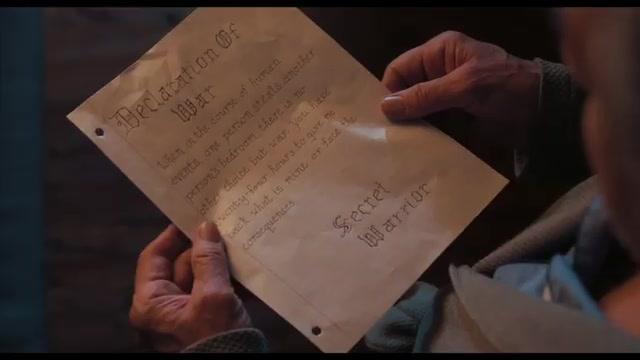 Declaration Of
War
When in the course of human
events, one person steals another
person's bedroom, there is no
other choice but war. you have
twenty-four hours to give me
back what is mine or face the
consequences
Secret
Warrior